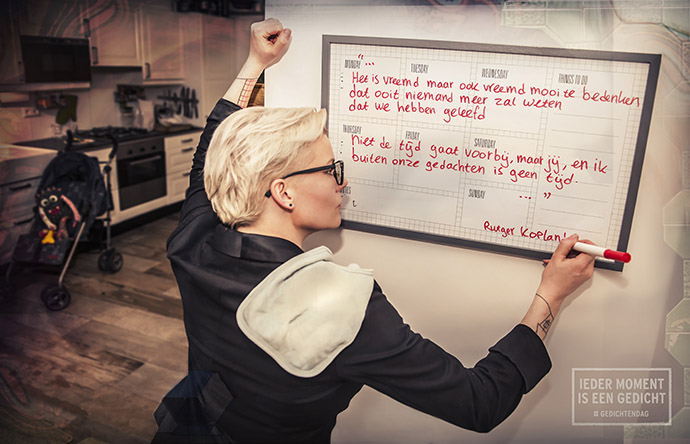 MONDAY
TUESDAY
WEDNESDAY
THINGS TO DO
"...
Het is vreemd maar ook vreemd mooi te bedenken
dat ooit niemand meer zal weten
dat we hebben geleefd
THURSDAY
FRIDAY
SATURDAY
Niet de tijd gaat voorbij, maar jij, en ik
buiten onze gedachten is geen tijd.
... "
NOTES
SUNDAY
Rutger Koplan
IEDER MOMENT
IS EEN GEDICHT
# GEDICHTENDAG